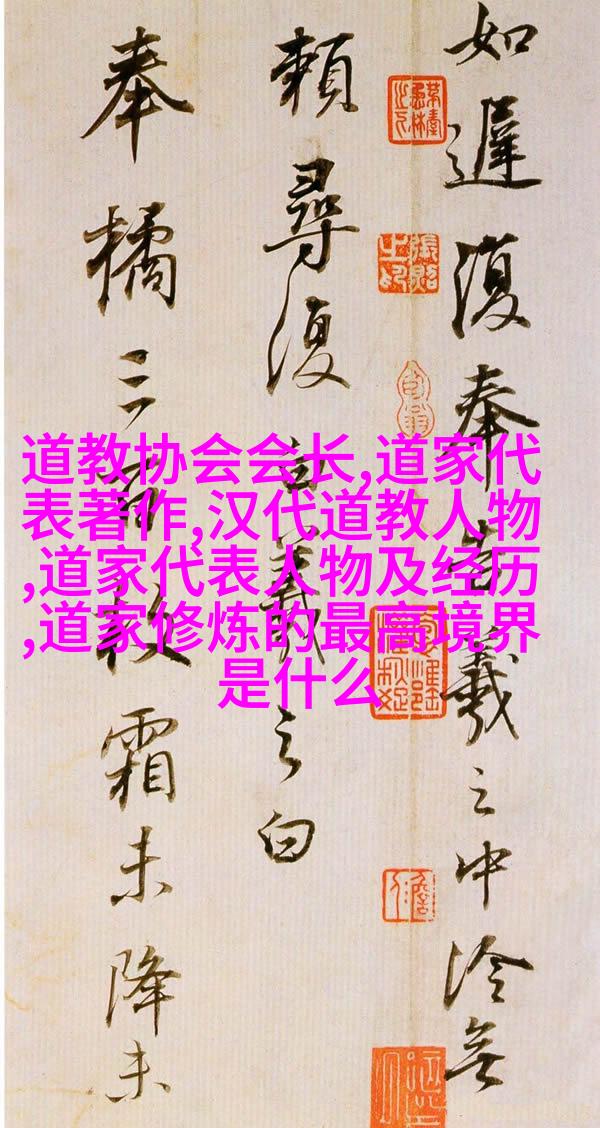 道教协会会长,道家代
表著作,汉代道教人物
,道家代表人物及经历
,道家修炼的最高境界
是什么
如遲復奉告羲之中冷無
賴尋復白羲之白
奉橘三百枚霜未降未